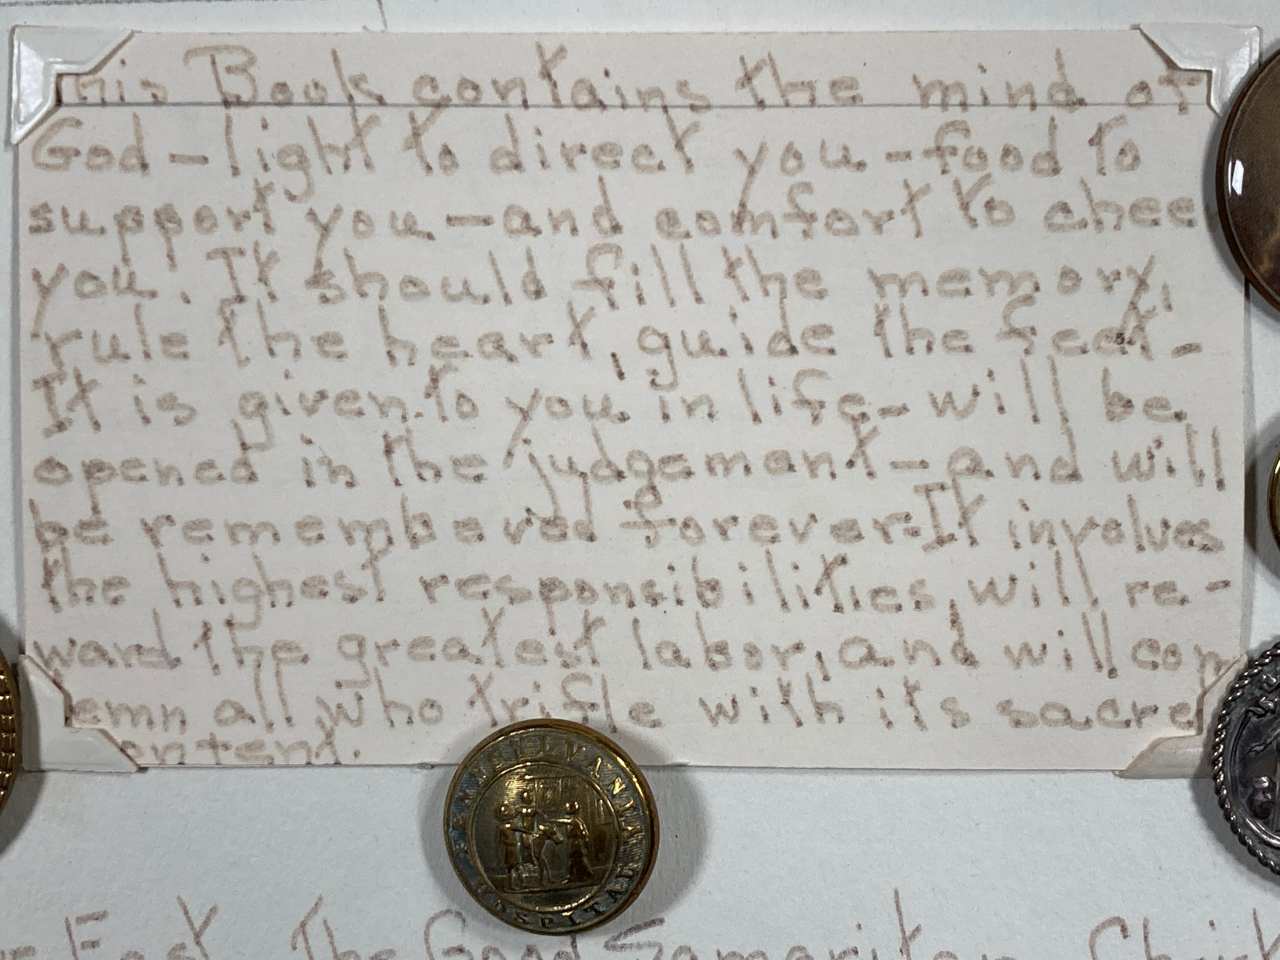 This Book contains the mind of
God – light to direct you – food to
support you – and comfort to chee
you. It should fill the memory,
rule the heart, guide the feet –
It is given to you in life – will be
opened in the judgement – and will
be remembered forever. It involves
the highest responsibilities, will re-
ward the greatest labor, and will con
emn all who trifle with its sacre
ontent.
PENNSYLVANIA
HOSPITAL
East The Good Samaritan Christ